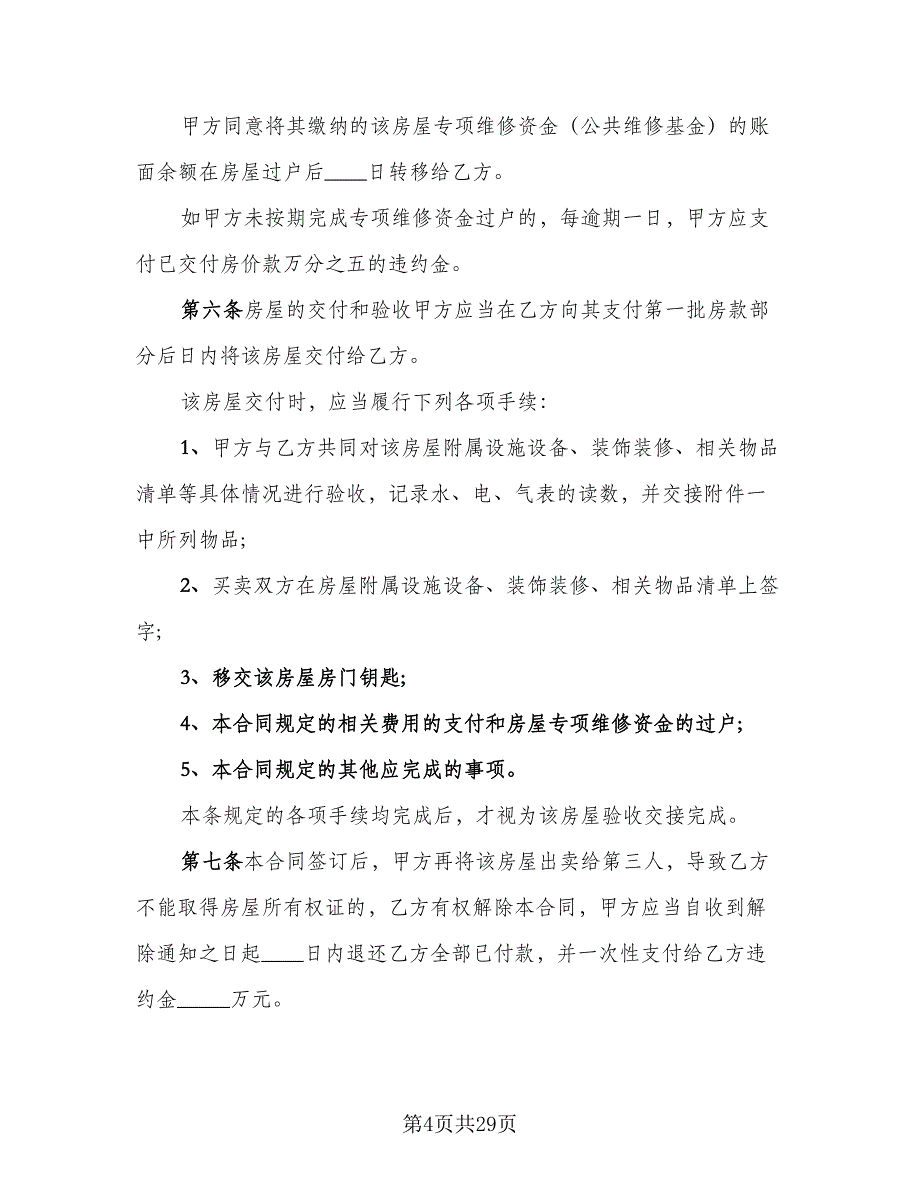 甲方同意将其缴纳的该房屋专项维修资金（公共维修基金）的账
面余额在房屋过户后____日转移给乙方。
如甲方未按期完成专项维修资金过户的，每逾期一日，甲方应支
付已交付房价款万分之五的违约金。
第六条房屋的交付和验收甲方应当在乙方向其支付第一批房款部
分后日内将该房屋交付给乙方。
该房屋交付时，应当履行下列各项手续：
1、甲方与乙方共同对该房屋附属设施设备、装饰装修、相关物品
清单等具体情况进行验收，记录水、电、气表的读数，并交接附件一
中所列物品;
2、买卖双方在房屋附属设施设备、装饰装修、相关物品清单上签
字;
3、移交该房屋房门钥匙;
4、本合同规定的相关费用的支付和房屋专项维修资金的过户;
5、本合同规定的其他应完成的事项。
本条规定的各项手续均完成后，才视为该房屋验收交接完成。
第七条本合同签订后，甲方再将该房屋出卖给第三人，导致乙方
不能取得房屋所有权证的，乙方有权解除本合同，甲方应当自收到解
除通知之日起____日内退还乙方全部已付款，并一次性支付给乙方违
约金_____万元。
第4页共29页